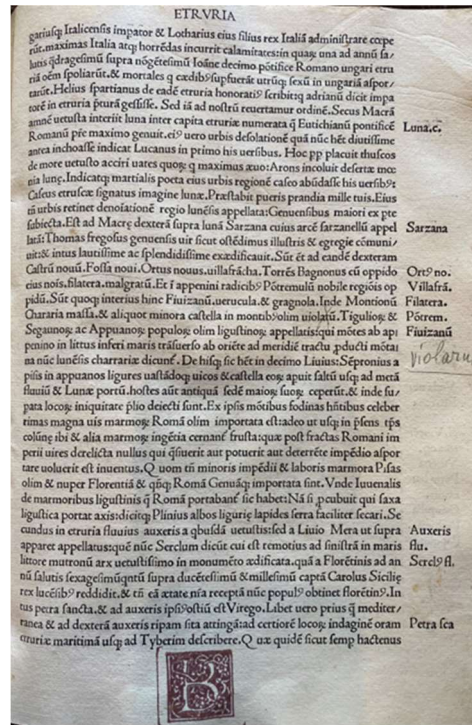 ETRVRIA
gariusq; Italicensis imꝑator & Lotharius eius filius rex Italiā administrare cœpe
rūt. maximas Italia atq; horrēdas incurrit calamitates: in quaꝝ una ad annū sa/
lutis q̄dragesimū supra nōgētesimū Ioāne decimo pōtifice Romano ungari etru
riā oēm spoliarūt. & mortales q̄ cædibꝰ supfuerāt utriusq; sexū in ungariā aspor/
tarūt. Helius spartianus de eadē etruria honoratiꝰ scribit q̄ adrianū dicit impa
torē in etruria p̄turā gessisse. Sed iā ad nostrū reuertamur ordinē. Secus Macrā
amnē uetusta interiit luna inter capita etruriæ numerata q̄ Eutichianū pontificē
Romanū p̄re maximo genuit. eiꝰ uero urbis desolationē quā nūc hēt diutissime
antea inchoasse indicat Lucanus in primo his uersibus. Hoc pp placuit thuscos
de more uetusto acciri uates quoꝝ q̄ maximus æuo: Arons incoluit desertæ mœ
nia lunę. Indicatq; martialis poeta eius urbis regionē caseo abūdasse his uersibꝰ:
Caseus etruscæ signatus imagine lunæ. Præstabit pueris prandia mille tuis. Eius
tn̄ urbis retinet denoīationē regio lunēsis appellata: Genuensibus maiori ex pte
subiecta. Est ad Macrę dexterā supra lunā Sarzana cuius arcē sarzanellū appel
latā: Thomas fregosus genuensis uir sicut ostēdimus illustris & egregie cōmuni/
uit: & intus lautissime ac splendidissime exædificauit. Sūt & ad eandē dexteram
Castrū nouū. Fossa noui. Ortus nouus. uillafrāchа. Torrēs Bagnonus cū oppido
eius nois. filatera. malgratū. Et ī appenini radicibꝰ Pōtremulū nobile regiōis op
pidū. Sūt quoq; interius hinc Fiuizanū. uerucula. & gragnola. Inde Montionū
Chararia massa. & aliquot minora castella in montibꝰ olim uiolatū. Tiguliоꝝ &
Segaunoꝝ ac Appuanoꝝ populoꝝ olim ligustinoꝝ appellatisiqui mōtes ab ap/
penino in littus inferi maris trāsuerso ab oriēte ad meridiē tractu pducti mōta/
na nūc lunēsis charrariæ dicunt̄. De hisq; sic hēt in decimo Liuius: Sēpronius a
pisis in appuanos ligures uastādoq; uicos & castella eoꝝ apuit saltū usq; ad metā
fluuiū & Lunæ portū. hostes aūt antiquā sedē maioꝝ suoꝝ ceperūt. & inde su/
pata locoꝝ iniquitate p̄lio deiecti sunt. Ex ipsis mōtibus fodinas hn̄tibus celeber
rimas magna uis marmoꝝ Romā olim importata est: adeo ut usq; in p̄sens tp̄s
colūnę ibi & alia marmoꝝ ingētia cernant̄ frusta: quæ post fractas Romani im
perii uires derelicta nullus qui q̄siuerit aut potuerit aut deterrēte impēdio aspor
tare uoluerit est inuentus. Q uom tn̄ minoris impēdii & laboris marmora Pisas
olim & nuper Florentiā & qn̄q; Romā Genuāq; importata sint. Vnde Iuuenalis
de marmoribus ligustinis q̄ Romā portabant̄ sic habet: Nā si pcubuit qui saxa
ligustica portat axis: dicitq; Plinius albos ligurię lapides serra faciliter secari. Se
cundus in etruria fluuius auxeris a qbusdā uetustis: sed a Liuio Mera ut supra
apparet appellatus: quē nūc Serclum dicūt cui est remotius ad sinistrā in maris
littore mutronū arx uetustissimo in monumēto ædificata. quā a Florētinis ad an
nū salutis sexagesimūqntū supra ducētesimū & millesimū captā Carolus Sicilię
rex lucēsibꝰ reddidit. & tn̄ eā ætate nr̄a receptā nūc populꝰ obtinet florētinꝰ. In
tus petra sancta. & ad auxeris ipsiꝰ ostiū est Virego. Libet uero prius q̄ mediter/
ranea & ad dexterā auxeris ripam sita attingā: ad certiorē locoꝝ indaginē oram
etruriæ maritimā usq; ad Tyberim describere. Q uæ quidē sicut semp hactenus
Luna.c.
Sarzana
Ortꝰ no.
Villafrā.
Filatera.
Pōtrem.
Fiuizanū
violaru
Auxeris
flu.
Serclꝰ fl.
Petra scа
B